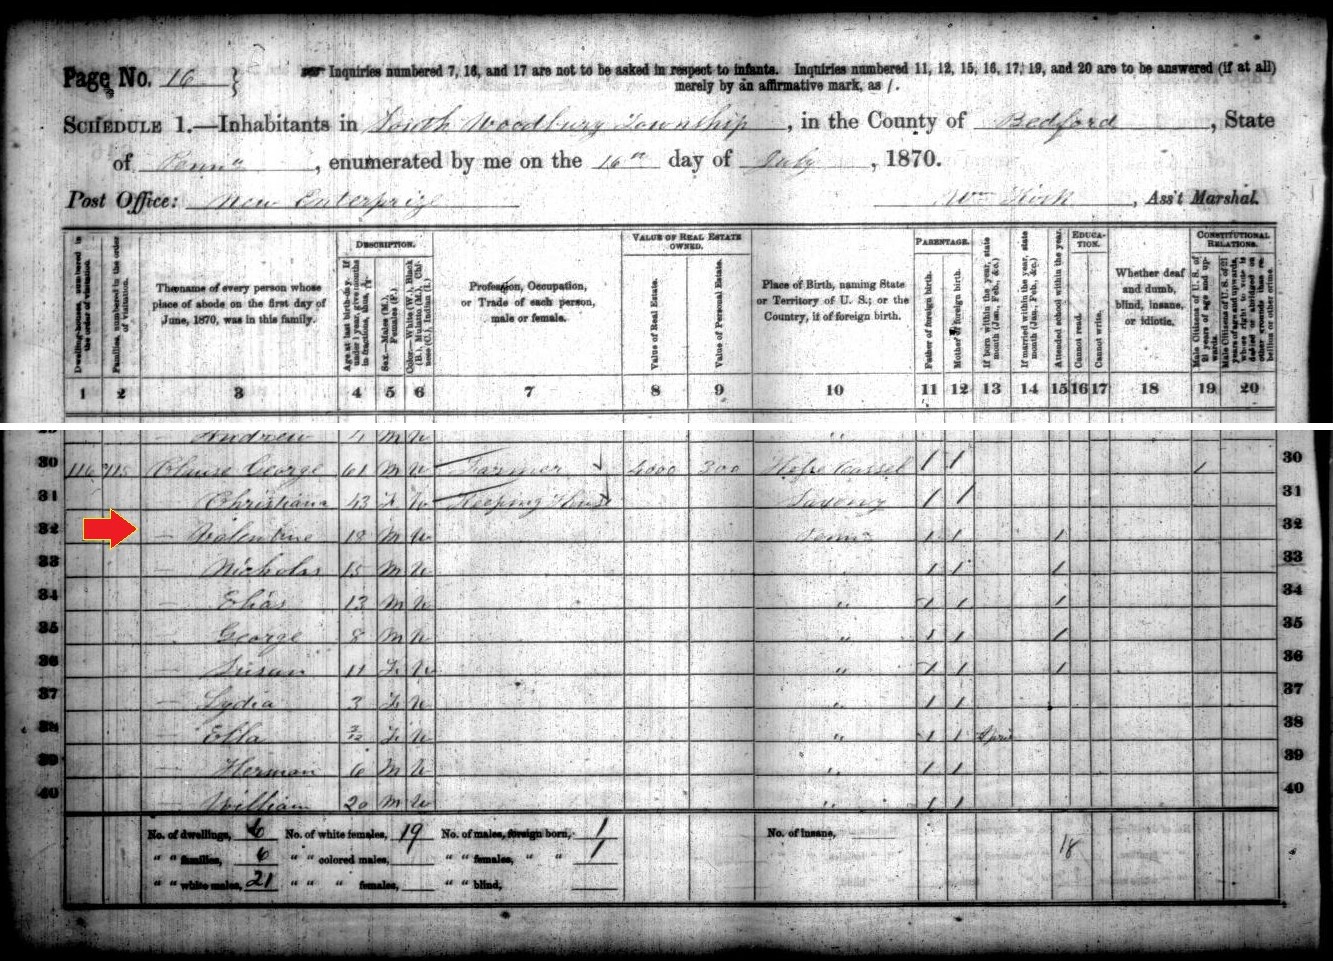 Page No. 16
Inquiries numbered 7, 16, and 17 are not to be asked in respect to infants. Inquiries numbered 11, 12, 15, 16, 17, 19, and 20 are to be answered (if at all)
merely by an affirmative mark, as /.
SCHEDULE 1.—Inhabitants in South Woodbury Township, in the County of Bedford, State
of Penna, enumerated by me on the 16th day of July, 1870.
Post Office: New Enterprize Wm, Ass't Marshal.
DESCRIPTION. VALUE OF REAL ESTATE OWNED. PARENTAGE. EDUCATION. CONSTITUTIONAL RELATIONS.
Dwelling-houses, numbered in the order of visitation.
Families, numbered in the order of visitation.
The name of every person whose
place of abode on the first day of
June, 1870, was in this family.
Age at last birth-day. If under 1 year, give months in fractions, thus,
Sex.—Males (M.), Females (F.)
Color.—White (W.), Black (B.), Mulatto (M.), Chinese (C.), Indian (I.)
Profession, Occupation,
or Trade of each person,
male or female.
Value of Real Estate.
Value of Personal Estate.
Place of Birth, naming State
or Territory of U. S.; or the
Country, if of foreign birth.
Father of foreign birth.
Mother of foreign birth.
If born within the year, state month (Jan., Feb., &c.)
If married within the year, state month (Jan., Feb., &c.)
Attended school within the year.
Cannot read.
Cannot write.
Whether deaf
and dumb,
blind, insane,
or idiotic.
Male Citizens of U. S. of 21 years of age and upwards.
Male Citizens of U. S. of 21 years of age and upwards, whose right to vote is denied or abridged on other grounds than rebellion or other crime.
1 2 3 4 5 6 7 8 9 10 11 12 13 14 15 16 17 18 19 20
Andrew 4 M W "
30 116 115 Clause George 61 M W Farmer 4000 300 Hesse Cassel / / / 30
31 Christiana 43 F W Keeping House Saxony / / 31
32 — Valentine 18 M W Penna / / / 32
33 — Nicholas 15 M W " / / / 33
34 — Elias 13 M W " / / / 34
35 — George 8 M W " / / / 35
36 — Susan 11 F W " / / / 36
37 — Lydia 3 F W " / / 37
38 — Ella 3/12 F W " / / April 38
39 — Herman 6 M W " / / 39
40 — William 20 M W " / / 40
No. of dwellings, 6 No. of white females, 19 No. of males, foreign born, 1 No. of insane,
" " families, 6 " " colored males, " " females, " " 1 18
" " white males, 21 " " " females, " " blind,